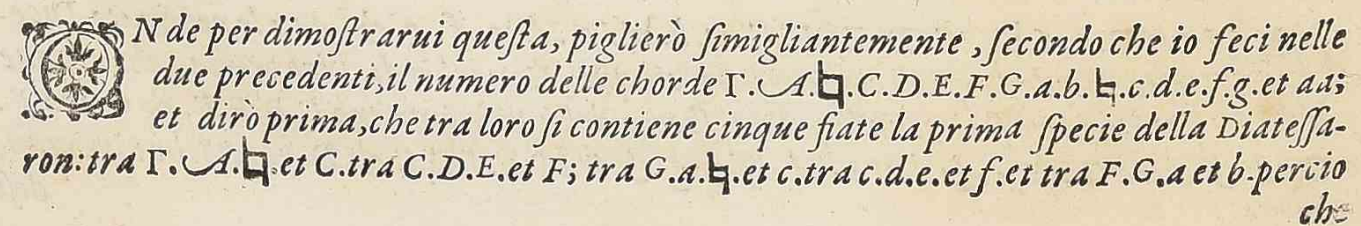 ONde per dimoſtrarui queſta, piglierò ſimigliantemente, ſecondo che io feci nelle
due precedenti, il numero delle chorde Γ.A.♮.C.D.E.F.G.a.b.♮.c.d.e.f.g.et aa;
et dirò prima, che tra loro ſi contiene cinque fiate la prima ſpecie della Diateſſa-
ron: tra Γ.A.♮.et C.tra C.D.E.et F; tra G.a.♮.et c.tra c.d.e.et f.et tra F.G.a et b.percio
che